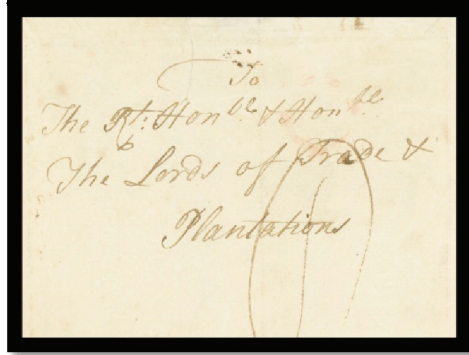 To
The Rt: Honble & Honble
The Lords of Trade &
Plantations